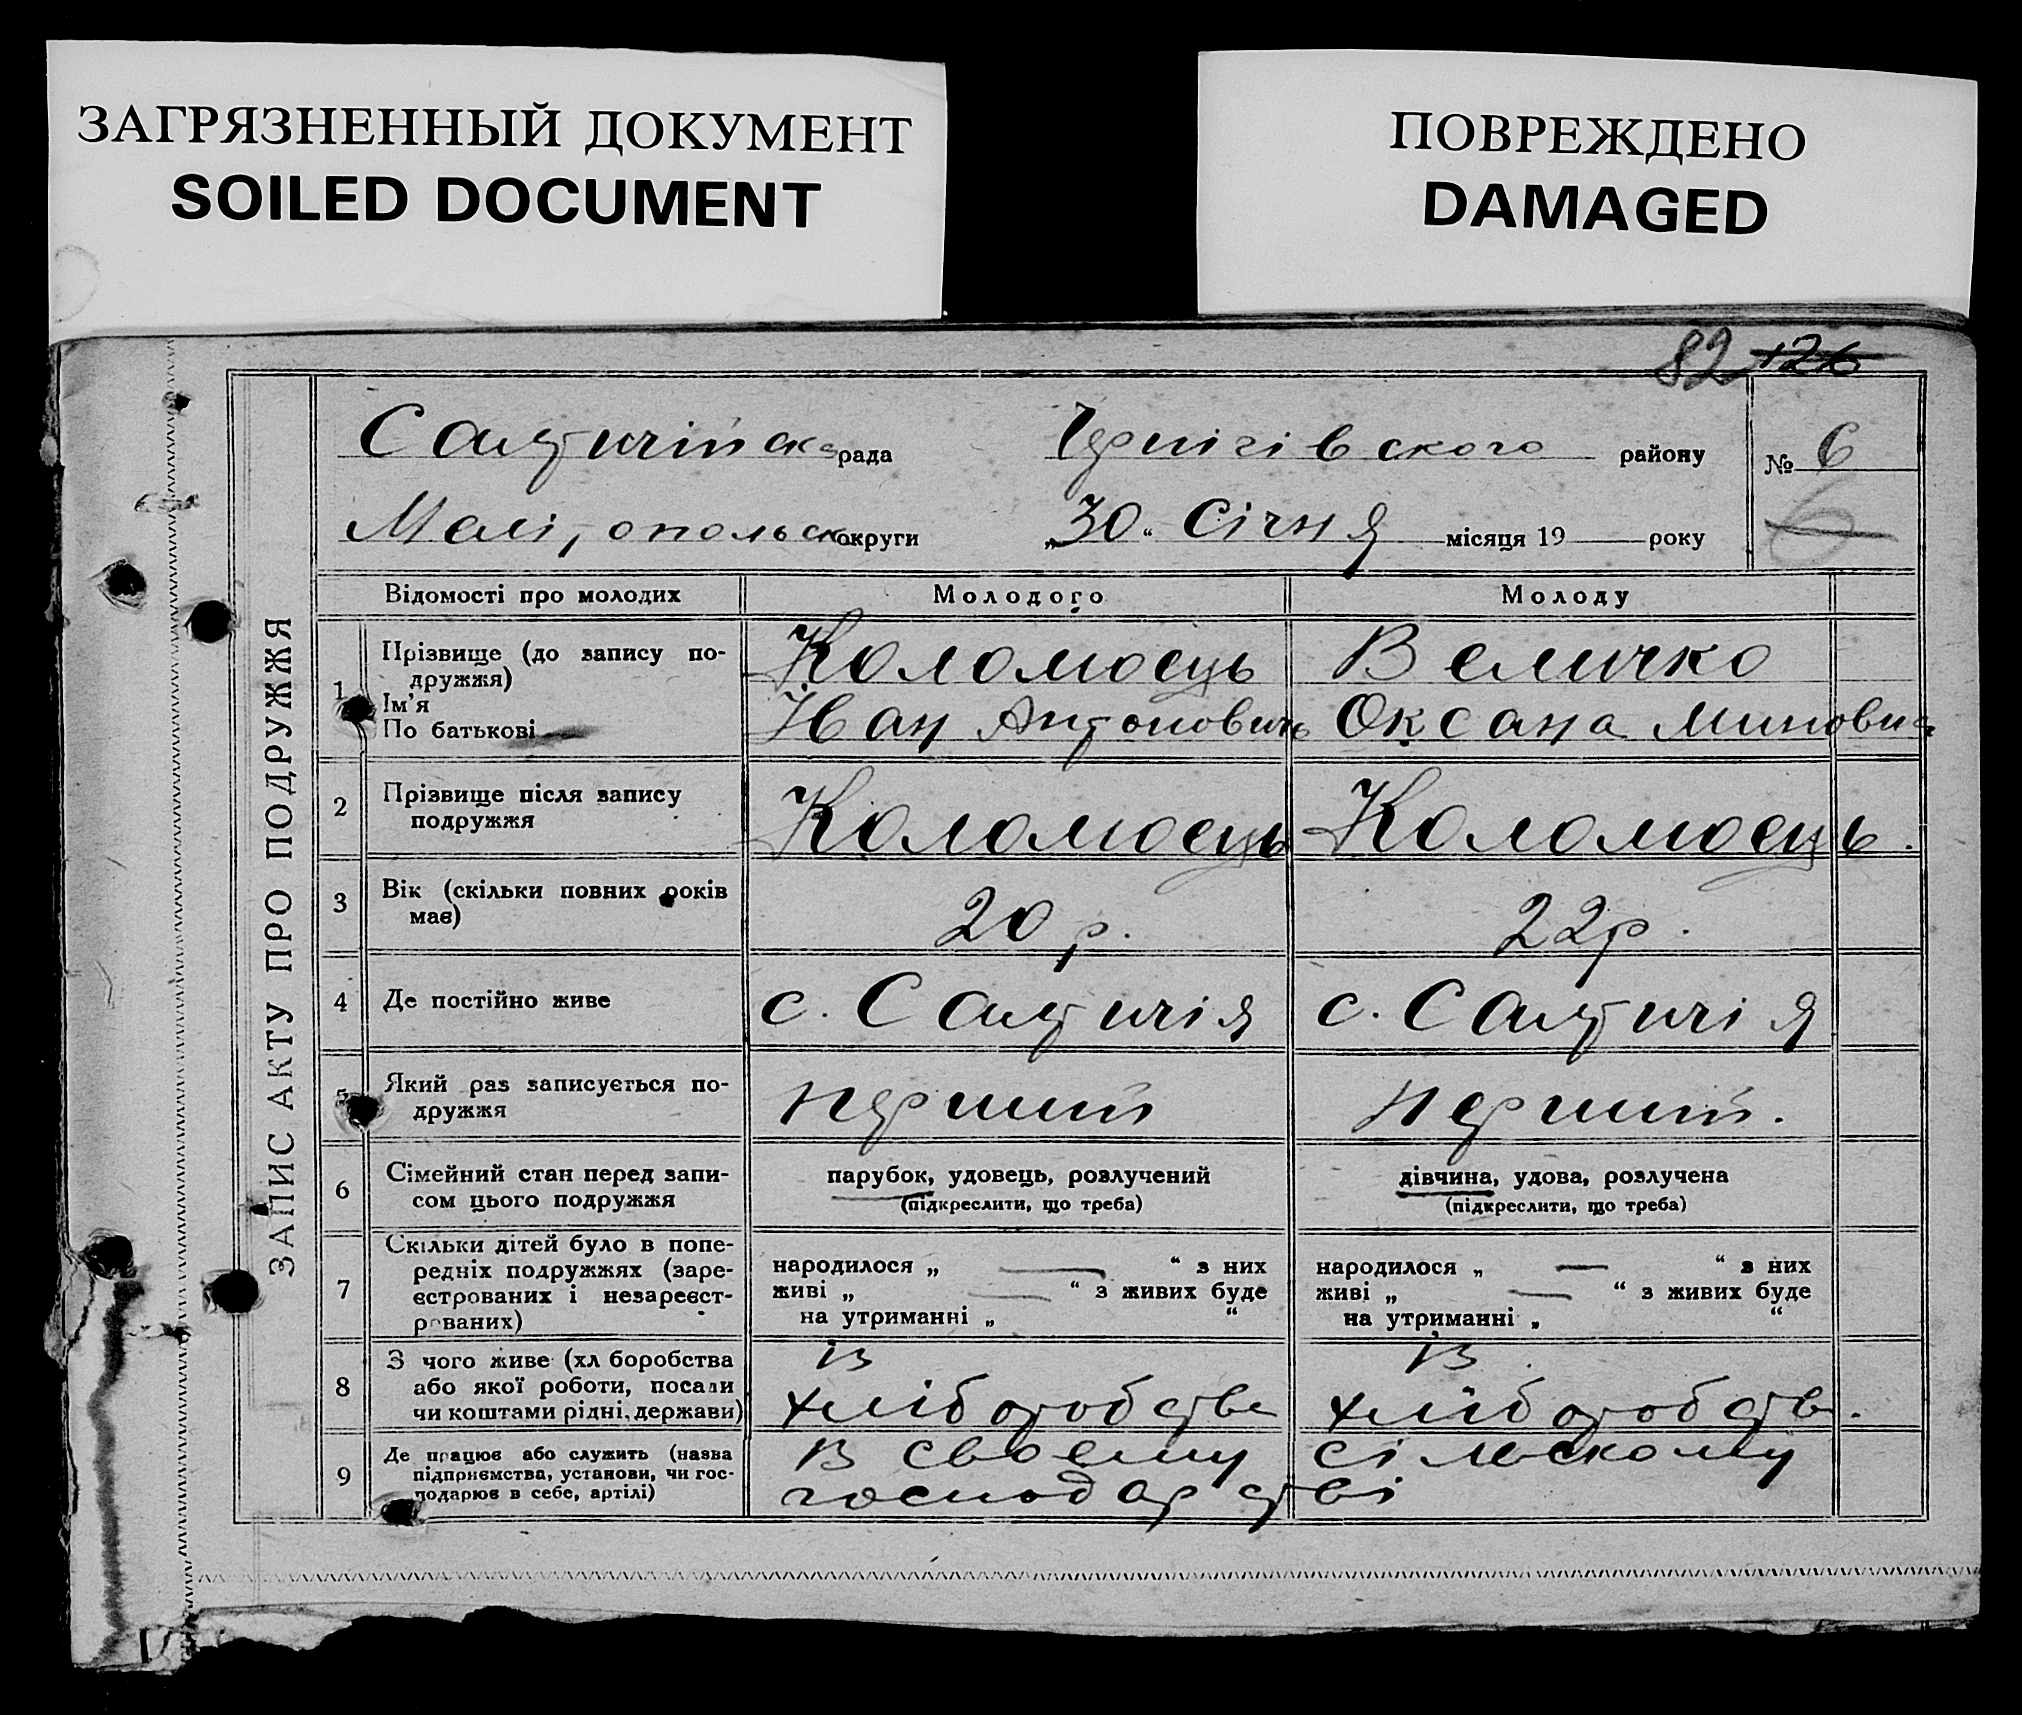 ЗАГРЯЗНЕННЫЙ ДОКУМЕНТ
SOILED DOCUMENT
ПОВРЕЖДЕНО
DAMAGED
82 126
ЗАПИС АКТУ ПРО ПОДРУЖЖЯ
рада Чернігівского району № 6
Малітопольск округи „30“ Січня місяця 19 року 6
Відомості про молодих Молодого Молоду
1 Прізвище (до запису по-
дружжя) Коломоець Величко
Ім'я
По батькові Иван Антонович Оксана
2 Прізвище після запису
подружжя Коломоець Коломоець.
3 Вік (скільки повних років
має) 20 р. 22 р.
4 Де постійно живе с. с.
5 Який раз записується по-
дружжя перший перший.
6 Сімейний стан перед запи-
сом цього подружжя
парубок, удовець, розлучений
(підкреслити, що треба)
дівчина, удова, розлучена
(підкреслити, що треба)
7 Скільки дітей було в попе-
редніх подружжях (заре-
єстрованих і незареєст-
рованих)
народилося „ — “ з них
живі „ — “ з живих буде
на утриманні „ “
народилося „ — “ з них
живі „ — “ з живих буде
на утриманні „ “
8 З чого живе (хл боробства
або якої роботи, посади
чи коштами рідні, держави)
В
хліборобстве
В
хліборобств.
9 Де працює або служить (назва
підприємства, установи, чи гос-
подарює в себе, артілі)
В своему сільскому
господарстві